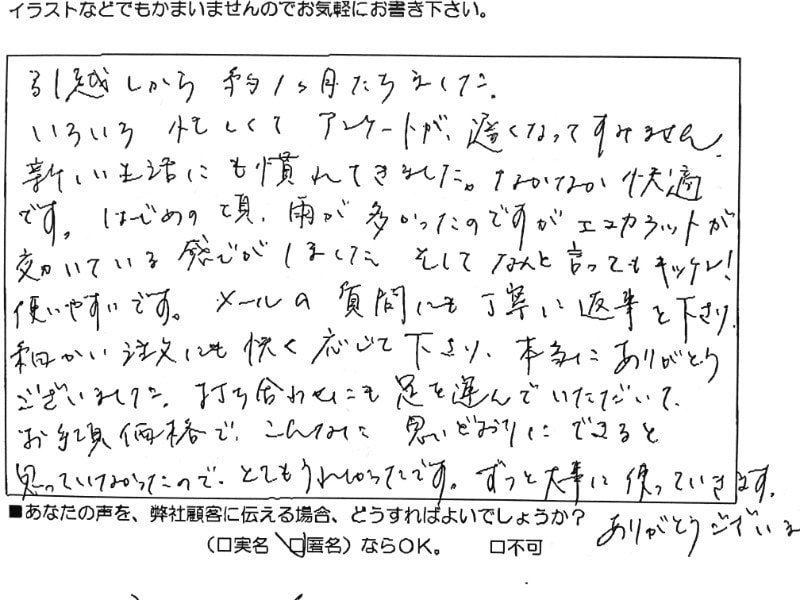 イラストなどでもかまいませんのでお気軽にお書き下さい。
引越しから約1ヶ月たちました。
いろいろ忙しくてアンケートが、遅くなってすみません。
新しい生活にも慣れてきました。なかなか快適
です。はじめの頃、雨が多かったのですがエコカラットが
効いている感じがしました。そしてなんと言ってもキッチン!
使いやすいです。メールの質問にも丁寧に返事を下さり、
細かい注文にも快く応じて下さり、本当にありがとう
ございました。打ち合わせにも足を運んでいただいて、
お手頃価格で、こんなに思いどおりにできると
思っていなかったので、とてもうれしかったです。ずっと大事に使っていきます。
■あなたの声を、弊社顧客に伝える場合、どうすればよいでしょうか?
ありがとうございま
(□実名 □匿名)ならOK。 □不可